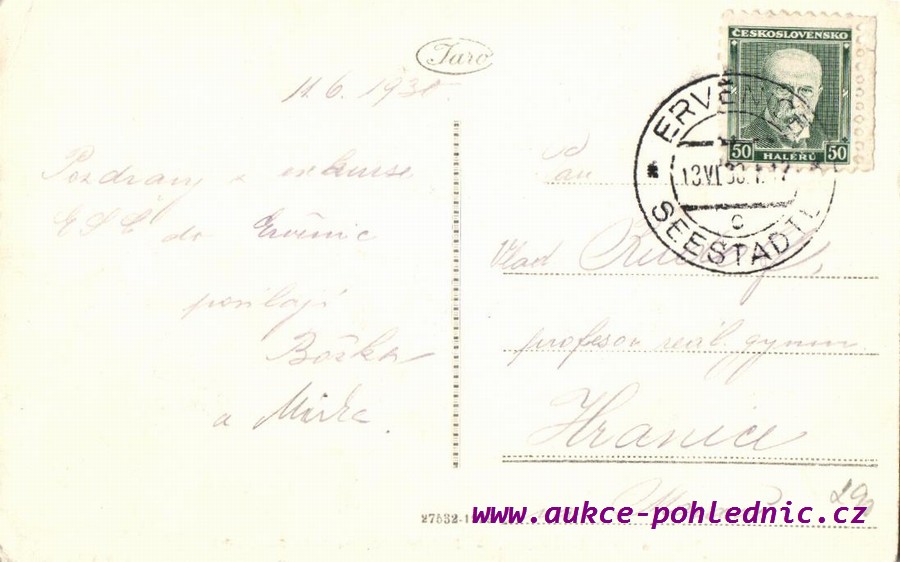 Taro
11.6. 193
Pozdrav z exkurse
do Ervěnic
posílají
Božka
a Mirka
ČESKOSLOVENSKO
50 HALÉŘŮ 50
ERVĚNICE
13.VI.
c
SEESTADTL
Pan
Vlad
profesor reál. gymn.
Hranice
27532-1
www.aukce-pohlednic.cz